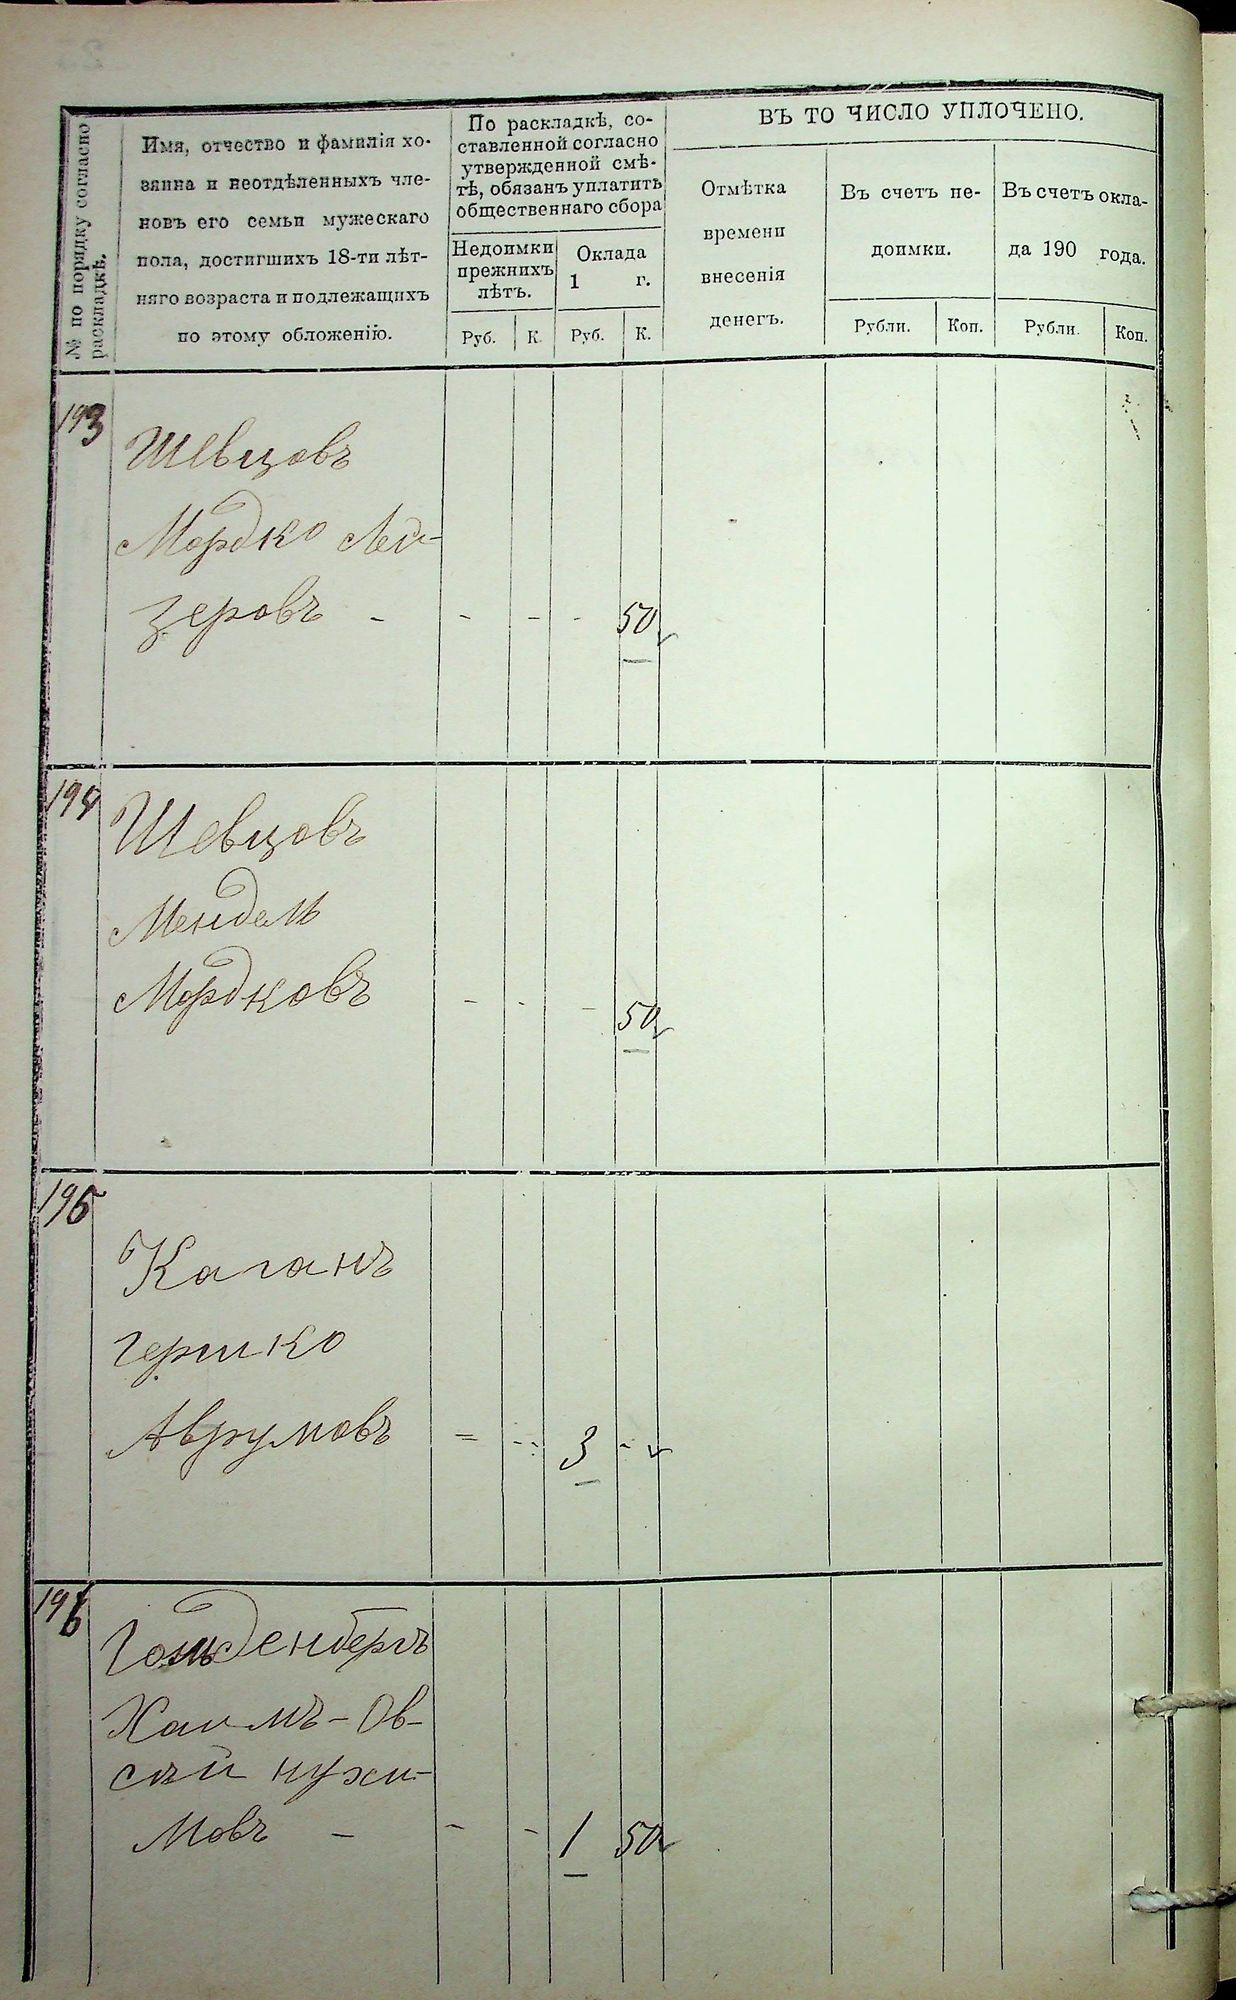 № по порядку согласно
раскладкѣ.
Имя, отчество и фамилія хо-
зяина и неотдѣленныхъ чле-
новъ его семьи мужескаго
пола, достигшихъ 18-ти лѣт-
няго возраста и подлежащихъ
по этому обложенію.
По раскладкѣ, со-
ставленной согласно
утвержденной смѣ-
тѣ, обязанъ уплатить
общественнаго сбора
Недоимки
прежнихъ
лѣтъ.
Оклада
1 г.
Руб. К. Руб. К.
ВЪ ТО ЧИСЛО УПЛОЧЕНО.
Отмѣтка
времени
внесенія
денегъ.
Въ счетъ не-
доимки.
Въ счетъ окла-
да 190 года.
Рубли. Коп. Рубли. Коп.
193
Шевцовъ
Мордко Лей-
зеровъ - - - - 50
194
Шевцовъ
Мендель
Мордковъ - - - 50
195
Каганъ
Гершко
Аврумовъ = - 3 -
196
Гольденбергъ
Хаимъ-Ов-
сѣй Нухи-
мовъ - - - 1 50